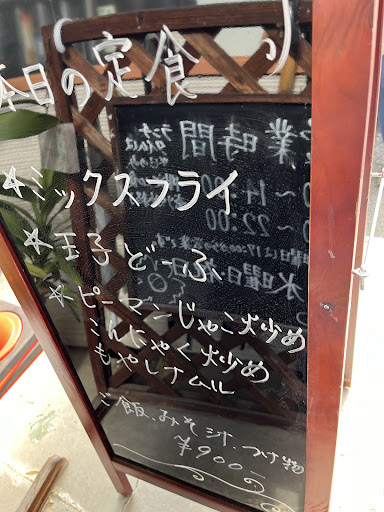 本日の定食
☆ミックスフライ
☆玉子どーふ
☆ピーマンじゃこ炒め
こんにゃく炒め
もやしナムル
ご飯、みそ汁、つけ物
¥900-
業時間
22:00
水曜日